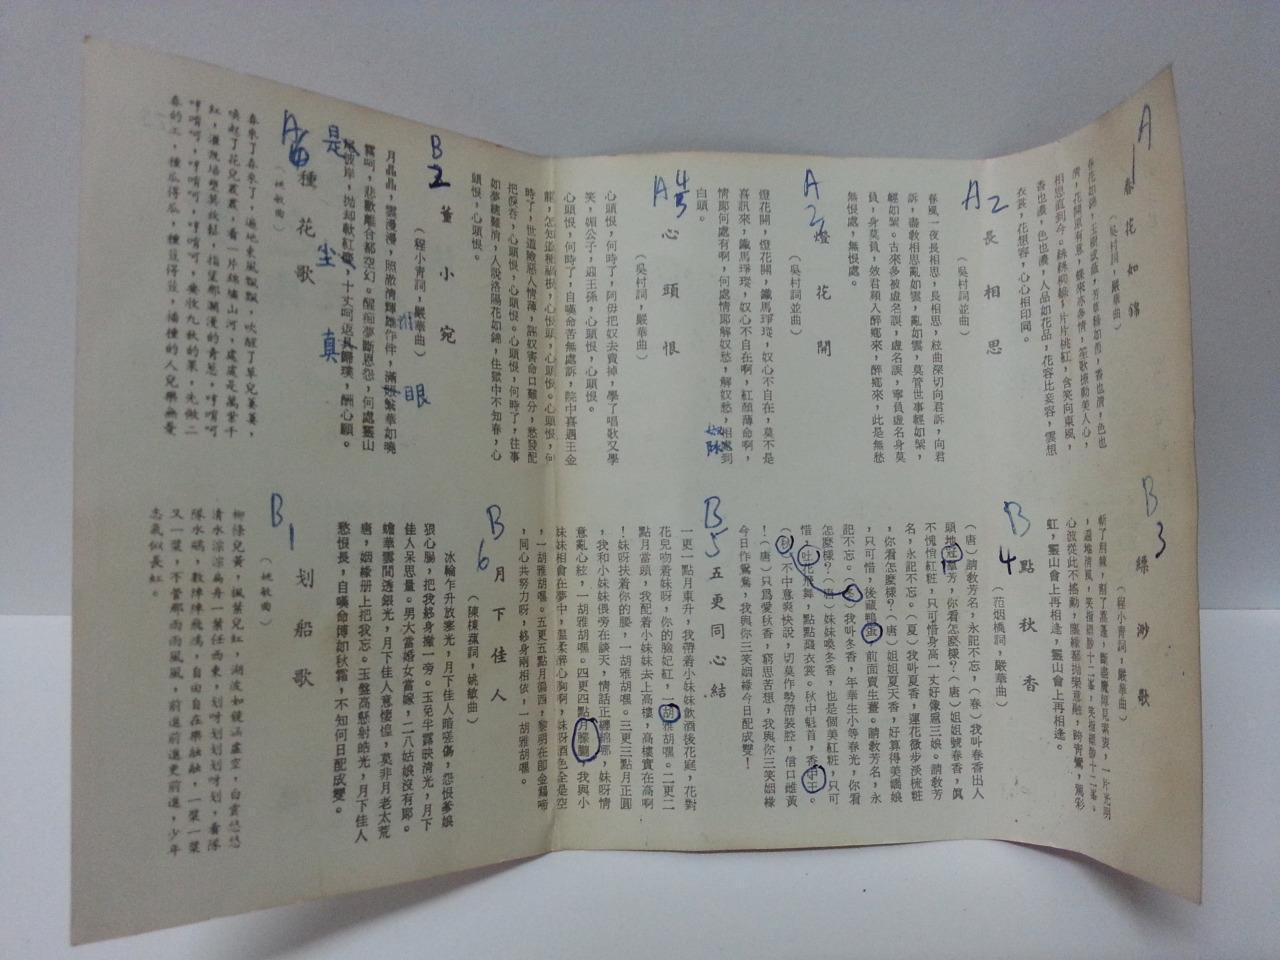 A1
春花如錦
（吳村詞，嚴華曲）
相思直到今。絲絲柳線，片片桃紅，含笑向東風，
香也濃，色也濃，人品如花品，花容比妾容，雲想
衣裳，花想容，心心相印同。
A2
長相思
（吳村詞並曲）
春風一夜長相思，長相思，絃曲深切向君訴，向君
訴，盡敎相思亂如雲，亂如雲，莫管世事輕如鬆，
輕如鬆。古來多被虛名誤，虛名誤，寧負虛名身莫
負，身莫負，效君願入醉鄉來，醉鄉來，此是無愁
無恨處，無恨處。
A3
燈花開
（吳村詞並曲）
燈花開，燈花開，鐵馬琤瑽，奴心不自在，莫不是
喜訊來，鐵馬琤瑽，奴心不自在啊，紅顏薄命啊，
情郎何處有啊，何處情郎解奴愁，解奴愁，相處到
白頭。
A4
心頭恨
（吳村詞，嚴華曲）
心頭恨，何時了，阿母把奴去賣掉，學了唱歌又學
笑，媚公子，迎王孫，心頭恨，心頭恨。
心頭恨，何時了，自嘆命苦無處訴，院中喜遇王金
龍，怎知道種禍根，心恨頭，心頭恨。心頭恨，何
時了，世道險惡人情薄，誣奴害命口難分，愁發配
把寃吞，心頭恨，心頭恨。心頭恨，何時了，往事
如夢總難消，人說洛陽花如錦，住獄中不知春，心
頭恨，心頭恨。
B2
董小宛
（程小青詞，嚴華曲）
月晶晶，雲漫漫，照澈情輝雄作伴，滿眼繁華如曉
霧呵，悲歡離合都空幻。醒癡夢斷恩怨，何處靈山
是彼岸，拋却軟紅塵，十丈呵返眞歸璞，酬心願。
是
塵
眞
眼
A6
種花歌
（姚敏曲）
春來了春來了，遍地東風飄飄，吹醒了草兒萋萋，
喚起了花兒叢叢，看一片錦繡山河，處處是萬紫千
紅，
春的工，種瓜得瓜，種荳得荳，播種的人兒樂無憂
B3
緲渺歌
（程小青詞，嚴華曲）
心波從此不搖動，
虹，靈山會上再相逢，靈山會上再相逢。
B4
點秋香
（范烟橋詞，嚴華曲）
（唐）請敎芳名，永記不忘，（春）我叫春香出人
頭地冠羣芳，你看怎麼樣？（唐）姐姐號春香，眞
不愧悄紅粧，只可惜身高一丈好像恩三娘。請敎芳
名，永記不忘。（夏）我叫夏香，蓮花微步淡梳粧
，你看怎麼樣？（唐）姐姐夏天香，好算得美嬌娘
，只可惜，後藏鴨蛋，前面賣生薑。請敎芳名，永
記不忘。（冬）我叫冬香，年華生小等春光，你看
怎麼樣？（唐）妹妹喚冬香，也是個美紅粧，只可
惜，吐花飛舞，點點濺衣裳。秋中魁首，香中王。
（秋）不中意爽快說，切莫作勢帶裝腔，信口雌黃
！（唐）只爲愛秋香，窮思苦想，我與你三笑姻緣
今日作鴛鴦，我與你三笑姻緣今日配成雙！
B5
五更同心結
一更一點月東升，我帶着小妹妹飲酒後花庭，花對
花兒吻着妹呀，你的臉妃紅，一胡雅胡嘿。二更二
點月當頭，我配着小妹妹去上高樓，高樓實在高啊
！妹呀扶着你的腰，一胡雅胡嘿。三更三點月正圓
，我和小妹妹偎旁在談天，情話正纏綿那，妹呀情
意亂心絃，一胡雅胡嘿。四更四點月朦朧，我與小
妹妹相會在夢中，溫柔醉心胸啊，妹呀酒色全是空
，一胡雅胡嘿。五更五點月偏西，黎明在卽金鷄啼
，同心共努力呀，終身兩相依，一胡雅胡嘿。
B6
月下佳人
（陳棣蘋詞，姚敏曲）
冰輪乍升放寒光，月下佳人暗嗟傷，怨恨爹娘
狠心腸，把我終身撇一旁。玉兔半露映清光，月下
佳人呆思量。男大當婚女當嫁，二八姑娘沒有郎。
蟾華雲間透銀光，月下佳人意悽惶，莫非月老太荒
唐，姻緣册上把我忘。玉盤高懸射皓光，月下佳人
愁恨長，自嘆命薄如秋霜，不知何日配成雙。
B1
划船歌
（姚敏曲）
柳條兒黃，楓葉兒紅，湖波如鏡涵虛空，白雲悠悠
清水淙淙扁舟一葉任西東，划呀划划呀划，看隊
隊水鷗，數陣陣飛鴻，自由自在樂融融，一葉一葉
又一葉，不管那雨雨風風，前進前進更前進，少年
志氣似長虹。